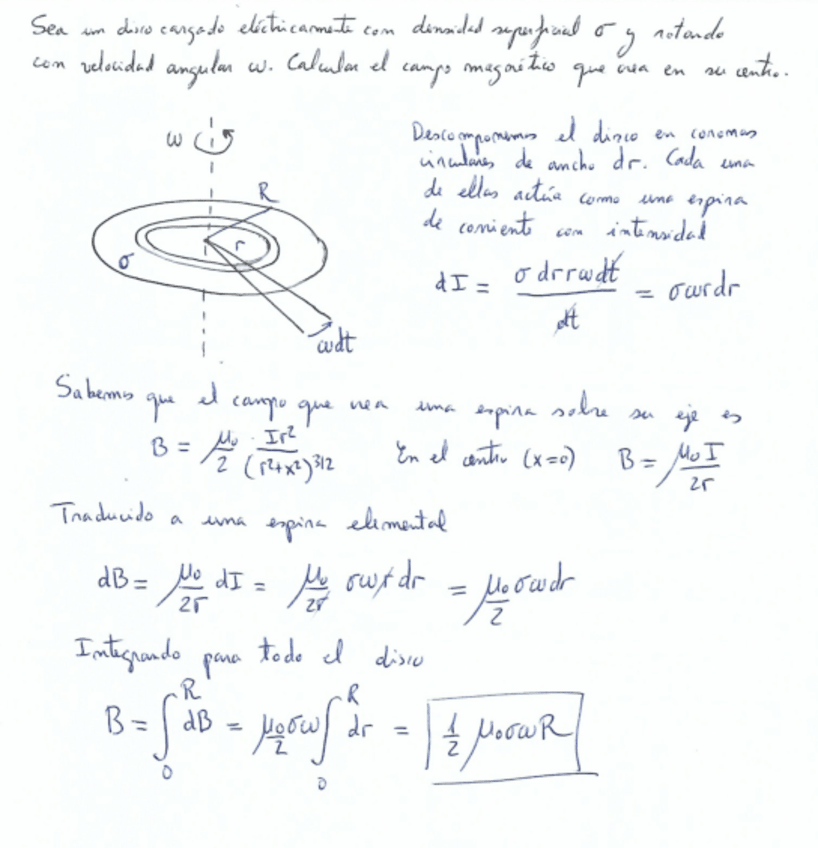 Sea un disco cargado eléctricamente con densidad superficial σ y rotando
con velocidad angular ω. Calcular el campo magnético que crea en su centro.
ω
R
r
σ
ωdt
Descomponemos el disco en coronas
circulares de ancho dr. Cada una
de ellas actúa como una espira
de corriente con intensidad
dI = σ dr r ω dt / dt = σωrdr
Sabemos que el campo que crea una espira sobre su eje es
B = μ₀/2 · Ir²/(r²+x²)^3/2 En el centro (x=0) B = μ₀I/2r
Traducido a una espira elemental
dB = μ₀/2r dI = μ₀/2r σωr dr = μ₀/2 σωdr
Integrando para todo el disco
B = ∫₀ᴿ dB = μ₀σω/2 ∫₀ᴿ dr = 1/2 μ₀σωR